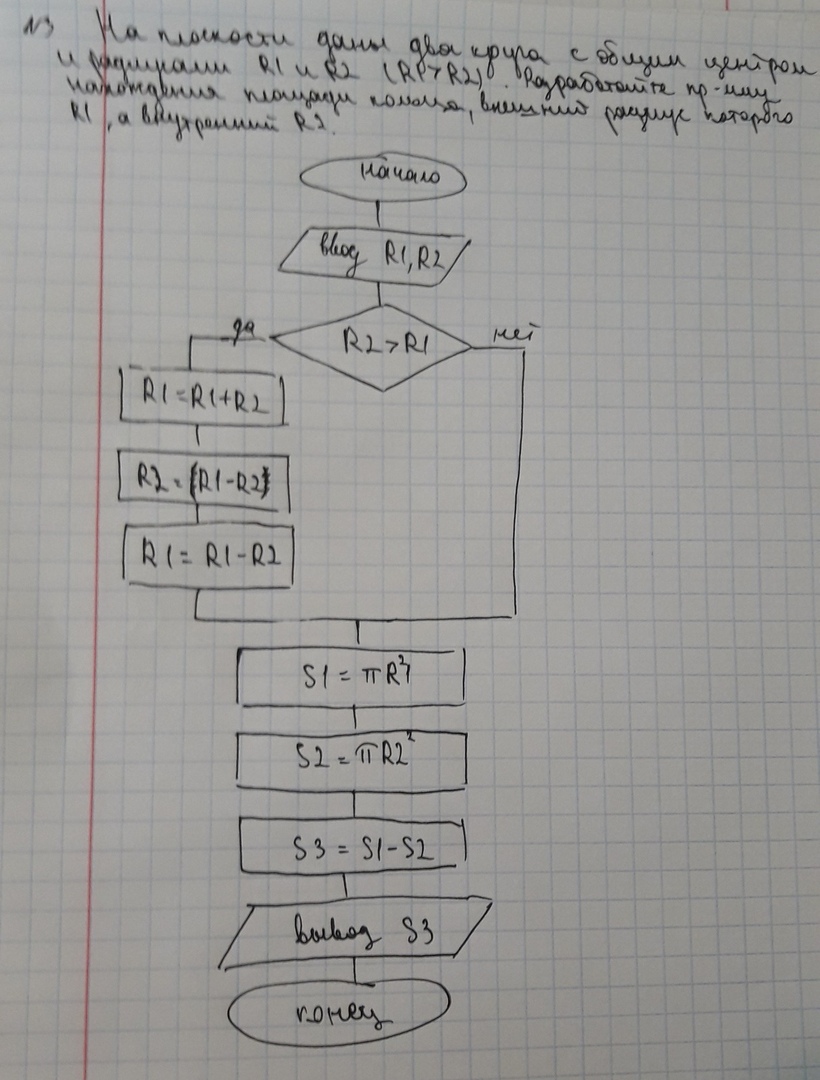 N3 На плоскости даны два круга с общим центром
и радиусами R1 и R2 (R1>R2). Разработайте пр-мму
нахождения площади кольца, внешний радиус которого
R1, а внутренний R2.
начало
ввод R1, R2
да
R2>R1
нет
R1=R1+R2
R2=(R1-R2)
R1=R1-R2
S1=πR1²
S2=πR2²
S3=S1-S2
вывод S3
конец